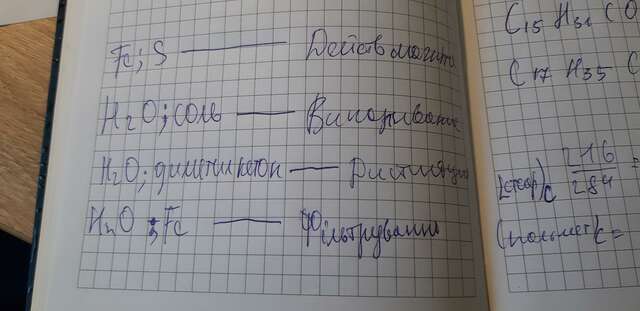 Fe; S — Действ магніт
H2O; соль — Випарювання
H2O; диметилкетон — Дистиляція
H2O ; Fe — Фільтрування
C15 H31 CO
C17 H35 C
(стеар)C 216/284 =
(пальмет)C =